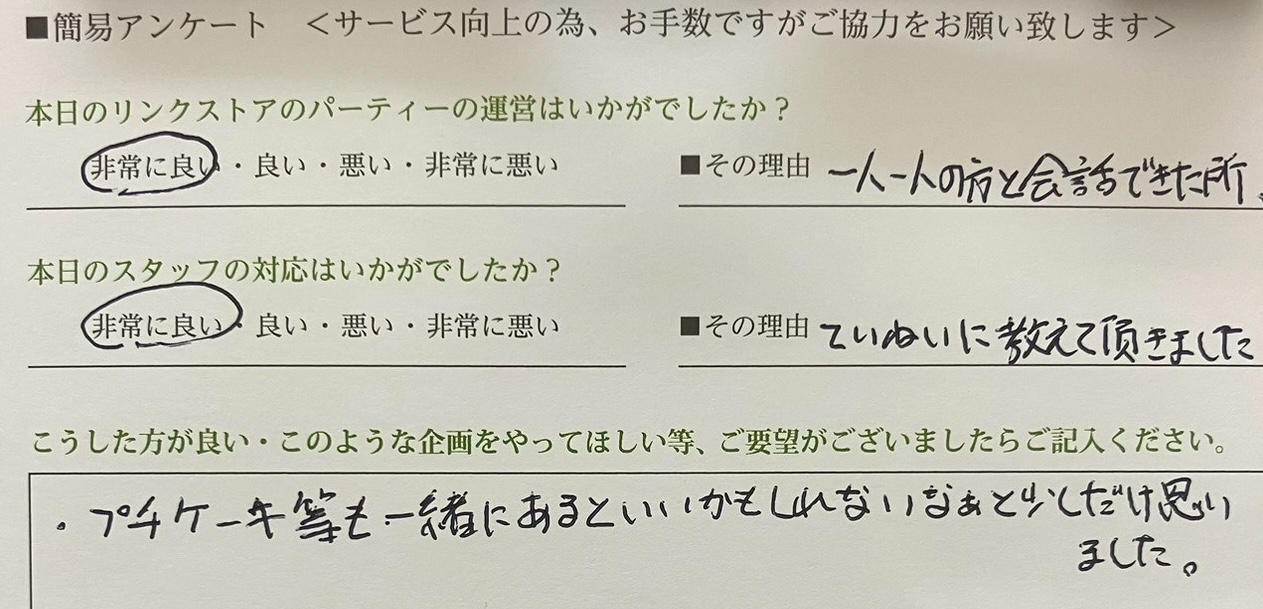 ■簡易アンケート ＜サービス向上の為、お手数ですがご協力をお願い致します＞
本日のリンクストアのパーティーの運営はいかがでしたか？
非常に良い・良い・悪い・非常に悪い ■その理由 一人一人の方と会話できた所、
本日のスタッフの対応はいかがでしたか？
非常に良い・良い・悪い・非常に悪い ■その理由 ていねいに教えて頂きました
こうした方が良い・このような企画をやってほしい等、ご要望がございましたらご記入ください。
・プチケーキ等も一緒にあるといいかもしれないなぁと少しだけ思い
ました。